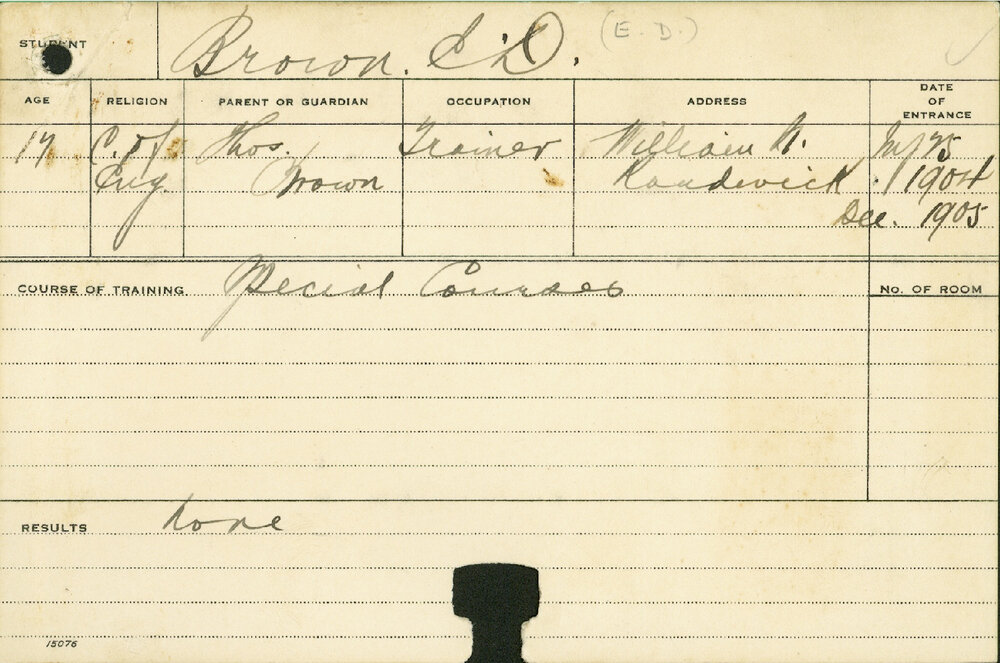 STUDENT Brown. E. D. (E. D.)
AGE RELIGION PARENT OR GUARDIAN OCCUPATION ADDRESS DATE OF ENTRANCE
17 C. of Thos. Trainer William St.
Eng Brown Randwick. 1904
Dec. 1905
COURSE OF TRAINING Special Courses No. OF ROOM
RESULTS None
15076